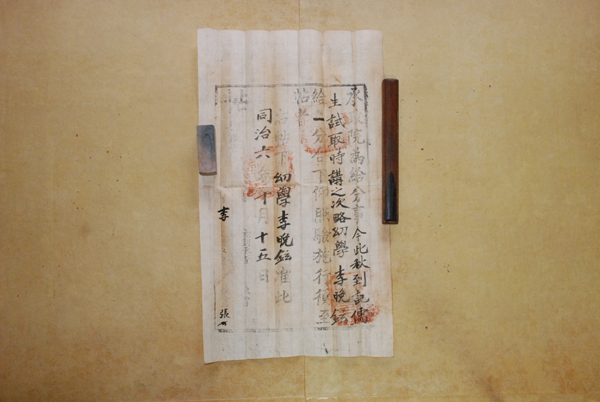 承文院爲給分事今此秋到記儒
生試取時講之次略幼學李晩鉉
給一分合下仰照驗施行須至
帖者
右帖下幼學李晩鉉准此
同治六年十月十五日
李
張